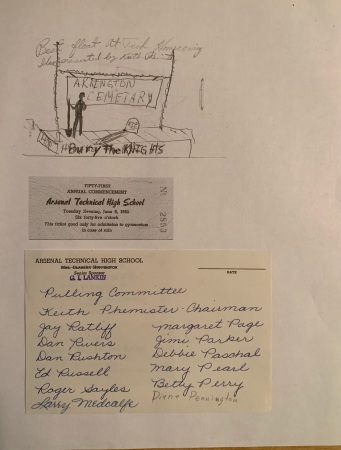 Best float at Tech Homecoming
ARLINGTON
CEMETARY
Bury The KNIGHTS
FIFTY-FIRST
ANNUAL COMMENCEMENT
Arsenal Technical High School
Tuesday Evening, June
Six forty-five o'clock
This ticket good only for admission to gymnasium
in case of rain
No 2853
ARSENAL TECHNICAL HIGH SCHOOL
O. L. LAMKIN
DATE
Pulling Committee
Keith Phemister - Chairman
Jay Ratliff
Margaret Page
Dan Rivers
Jime Parker
Dan Rushton
Debbie Paschal
Ed Russell
Mary Pearl
Roger Sayles
Betty Perry
Larry Medcalfe
Diane Pennington